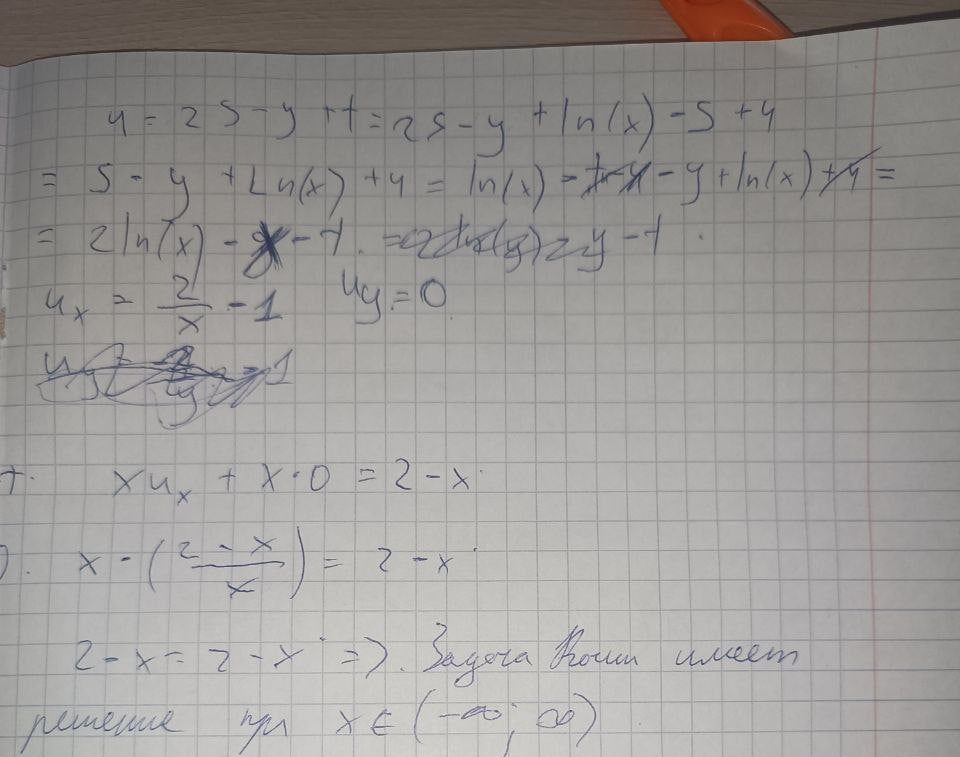 u = 2s - y + t = 2s - y + ln(x) - s + 4
= s - y + Ln(x) + 4 = ln(x) - y + ln(x) + 4 =
= 2 ln(x) - t. - y - t.
u_x = 2/x - 1 u_y = 0
x u_x + x · 0 = 2 - x
x · ((2 - x)/x) = 2 - x
2 - x = 2 - x => . Задача Коши имеет
решение при x ∈ (-∞; ∞)